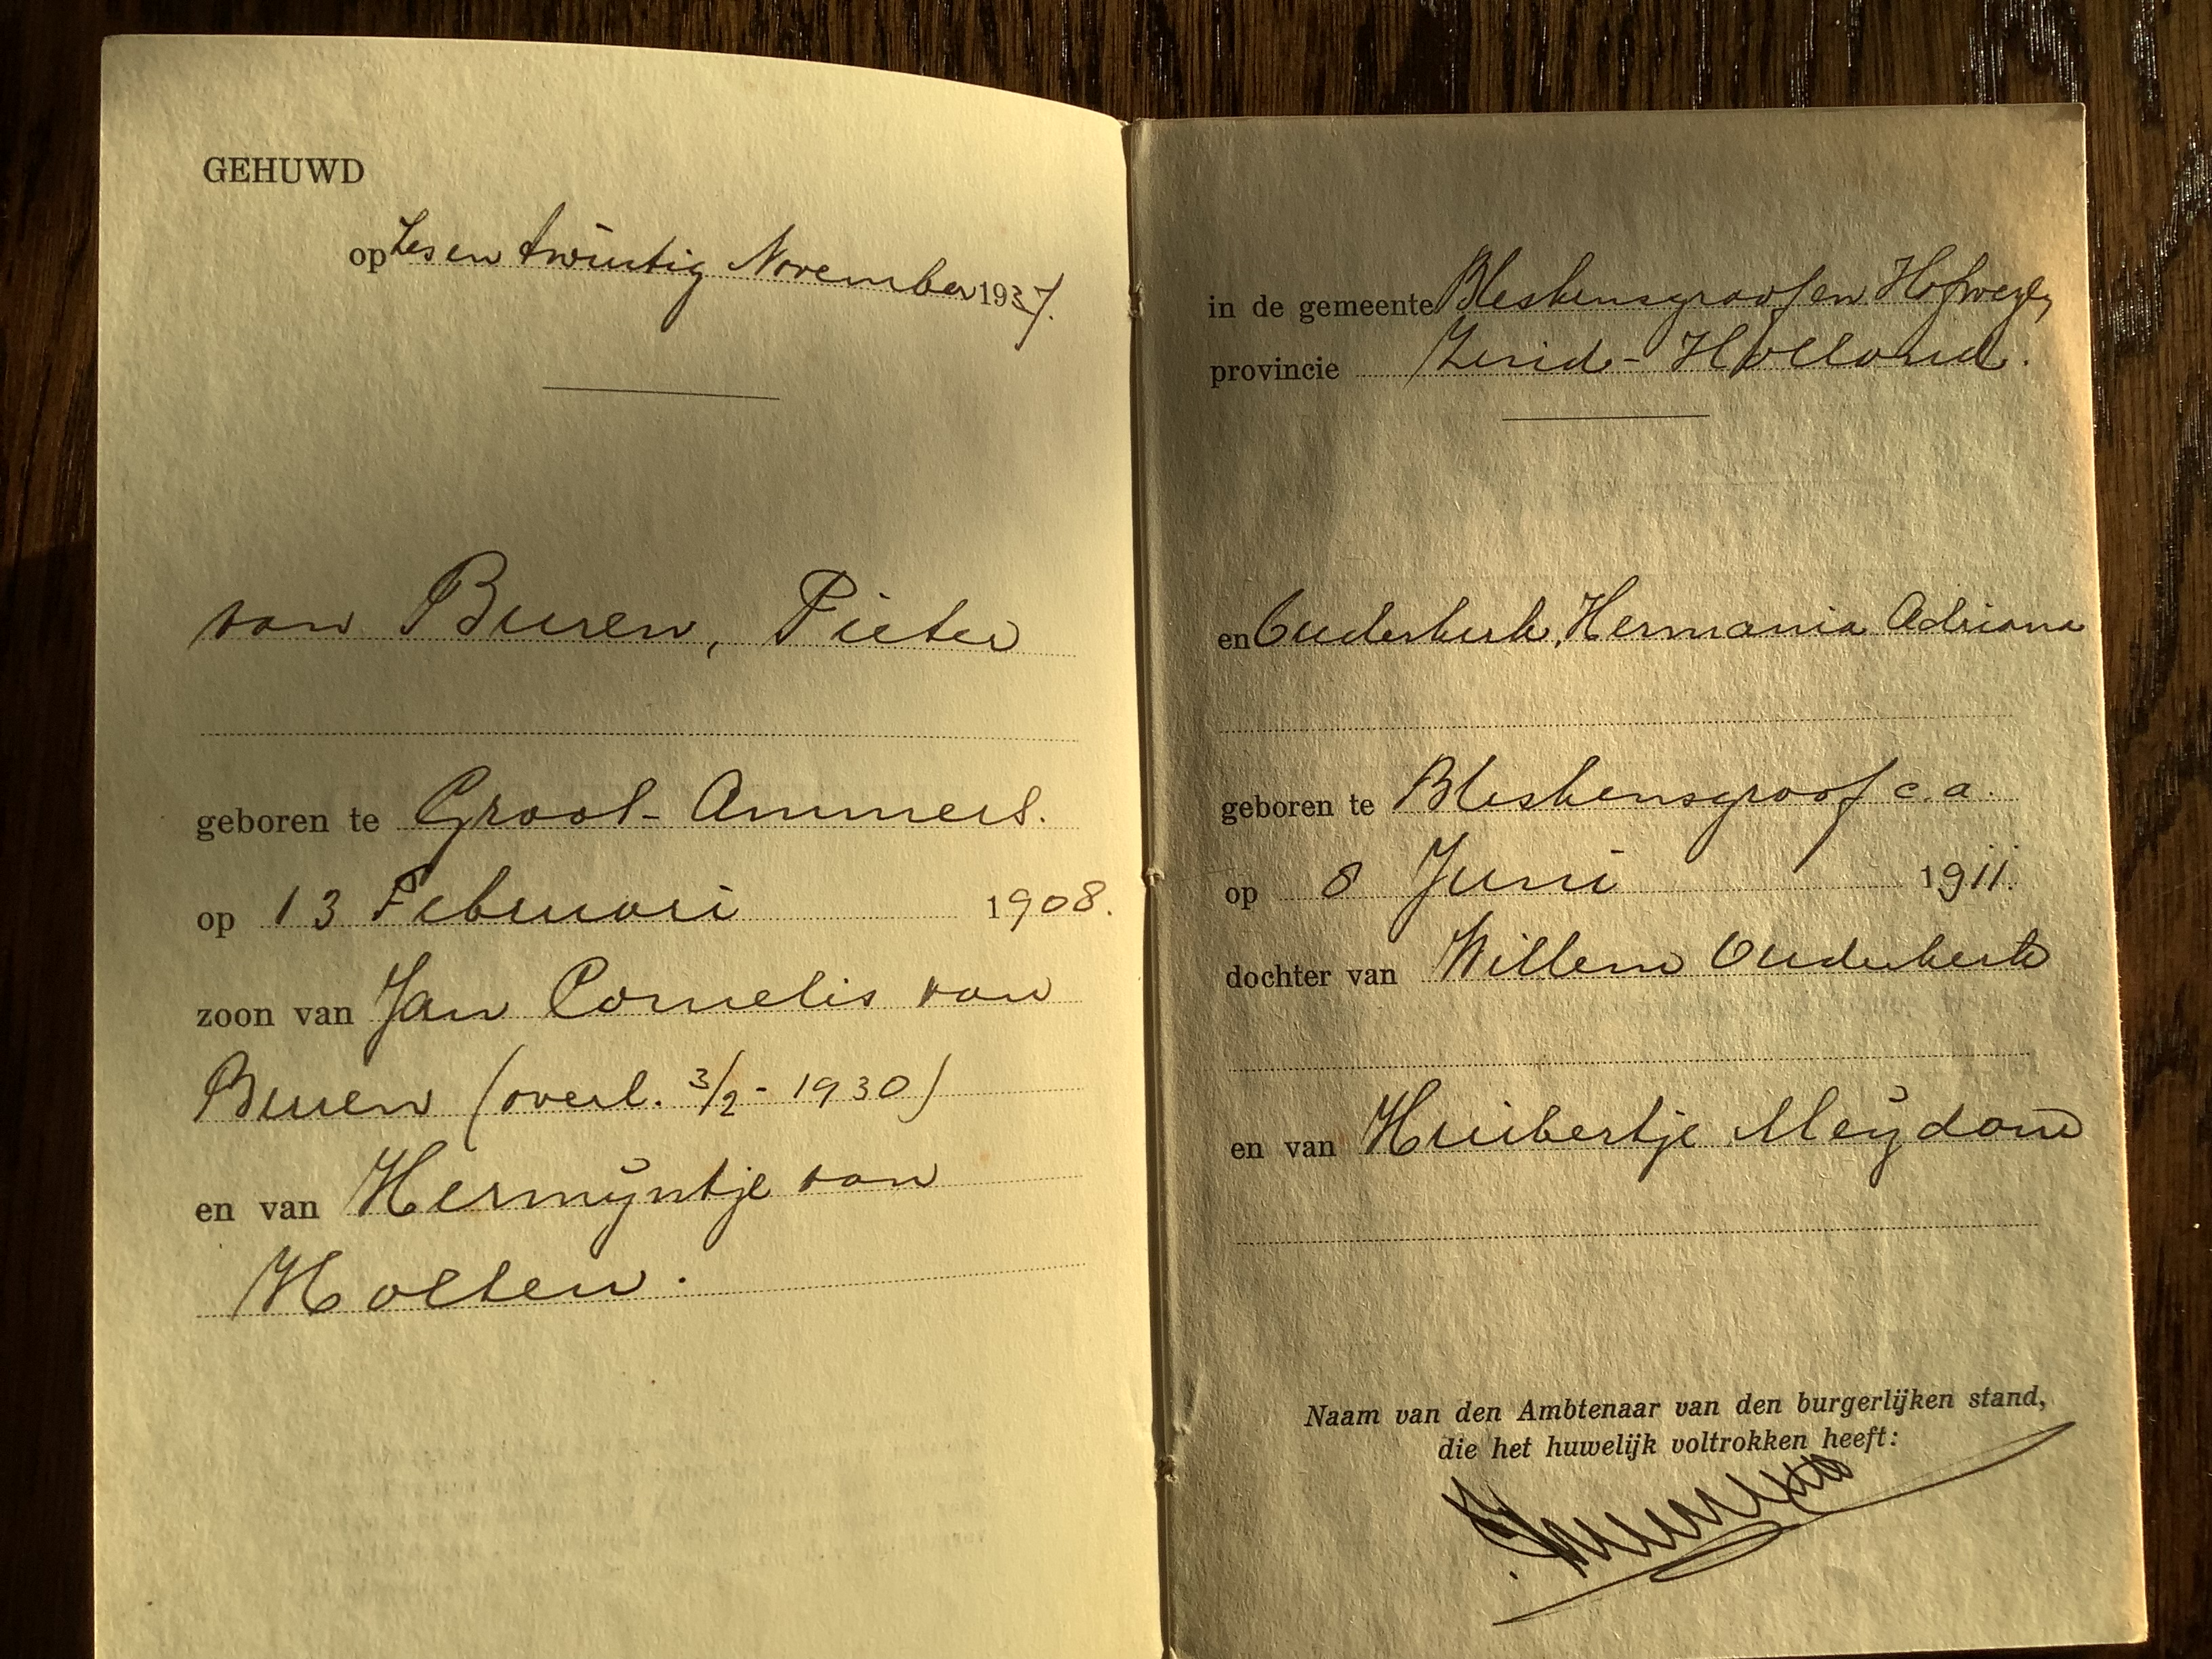 GEHUWD
op Zes en twintig November 1937.
van Buren, Pieter
geboren te Groot-Ammers.
op 13 Februari 1908.
zoon van Jan Cornelis van
Buren (overl. 3/2 - 1930)
en van Hermijntje van
Holten.
in de gemeente Bleskensgraaf en Hofwegen,
provincie Zuid-Holland.
en Ouderkerk, Hermania Adriana
geboren te Bleskensgraaf c.a.
op 8 Juni 1911.
dochter van Willem Ouderkerk
en van Huibertje Meijdam
Naam van den Ambtenaar van den burgerlijken stand,
die het huwelijk voltrokken heeft: